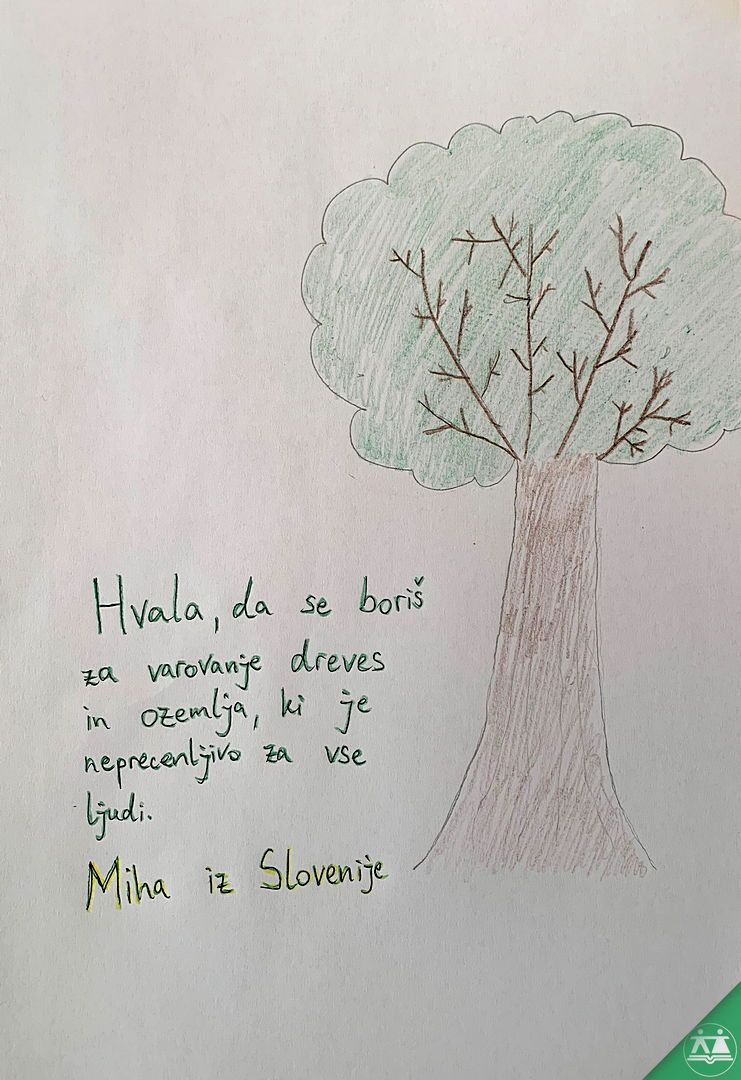 Hvala, da se boriš
za varovanje dreves
in ozemlja, ki je
neprecenljivo za vse
ljudi.
Miha iz Slovenije